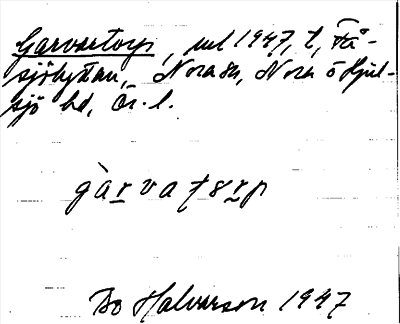 Garvartorp, ul 1947, t, Få-
sjöhyttan, Nora sn, Nora o Hjul-
sjö bd, Ör. l.
gàrvatorp
Bo Halvarson 1947